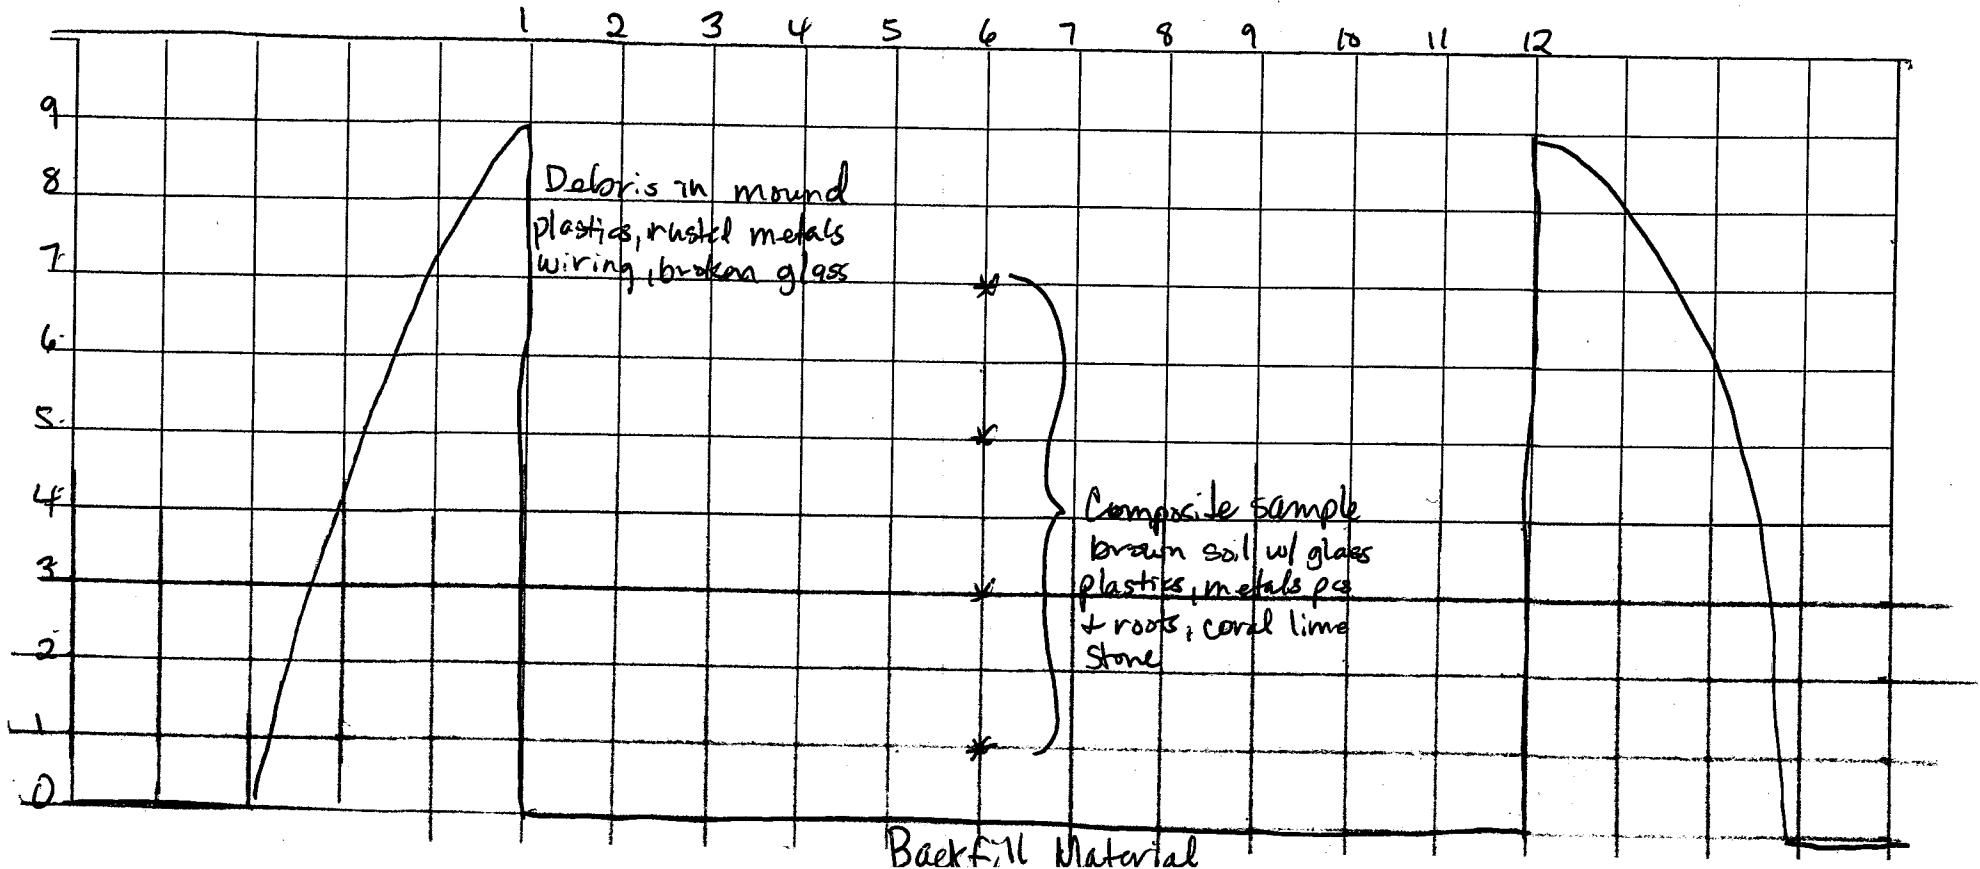 1 2 3 4 5 6 7 8 9 10 11 12
9
8
7
6
5
4
3
2
1
0
Debris in mound
plastics, rusted metals
wiring, broken glass
Composite sample
brown soil w/ glass
plastics, metals pcs
+ roots, coral lime
stone
Backfill Material